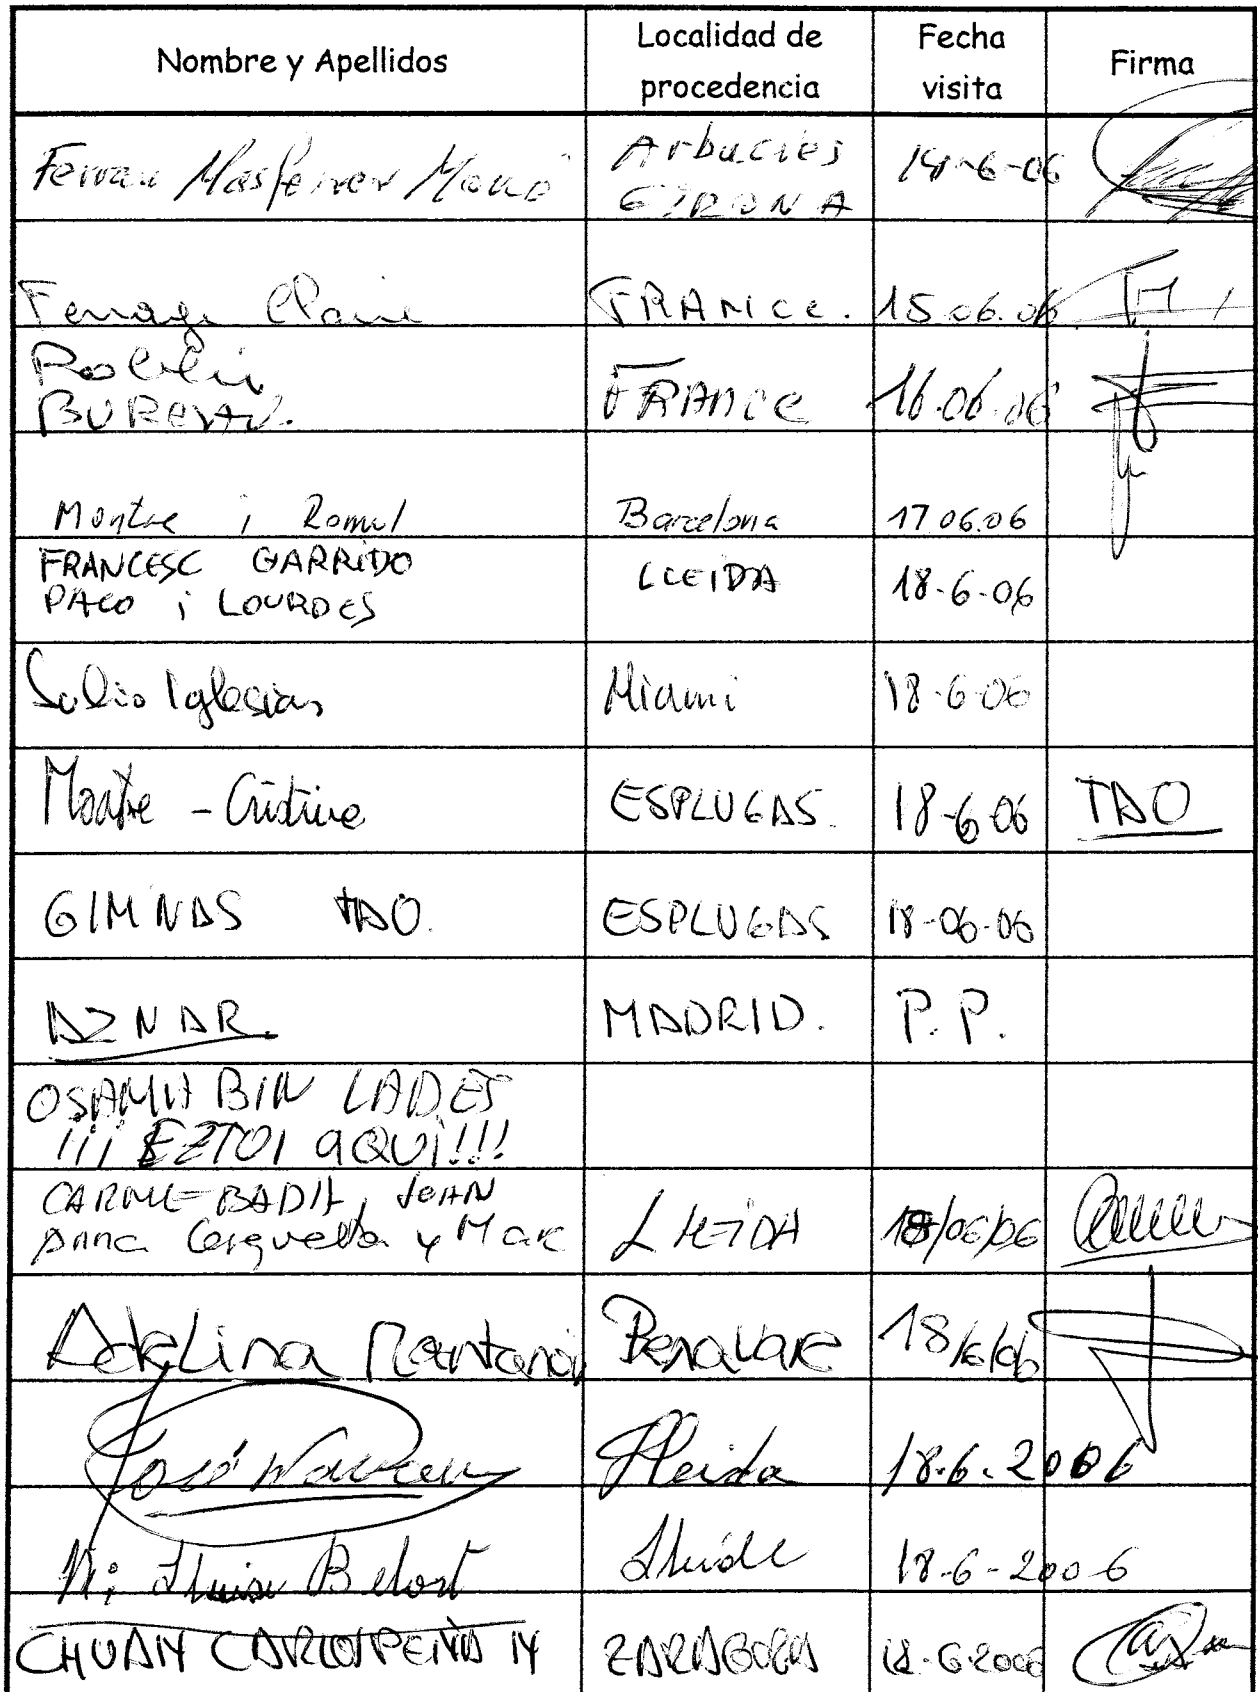 Nombre y Apellidos
Localidad de
procedencia
Fecha
visita
Firma
Ferran Masferrer
Arbucies
GIRONA
14-6-06
Claire
FRANCE.
15.06.06
FRANCE
16.06.06
Montse i Romul
Barcelona
17 06.06
FRANCESC GARRIDO
PACO i LOURDES
LLEIDA
18-6-06
Julio Iglesias
Miami
18-6-06
Montse - Cristina
ESPLUGAS.
18-6-06
TAO
GIMNAS TAO.
ESPLUGAS
18-06-06
AZNAR
MADRID.
P.P.
OSAMA BIN LADES
¡¡¡ EZTOI AQUÍ!!!
CARME BADIA, JOAN
Anna y Marc
LLEIDA
18/06/06
Adelina
Benavarre
18/6/06
José
Lleida
18.6.2006
Mª
Lleida
18-6-2006
CHUAN CARLOS PEÑA
ZARAGOZA
18-6-2006